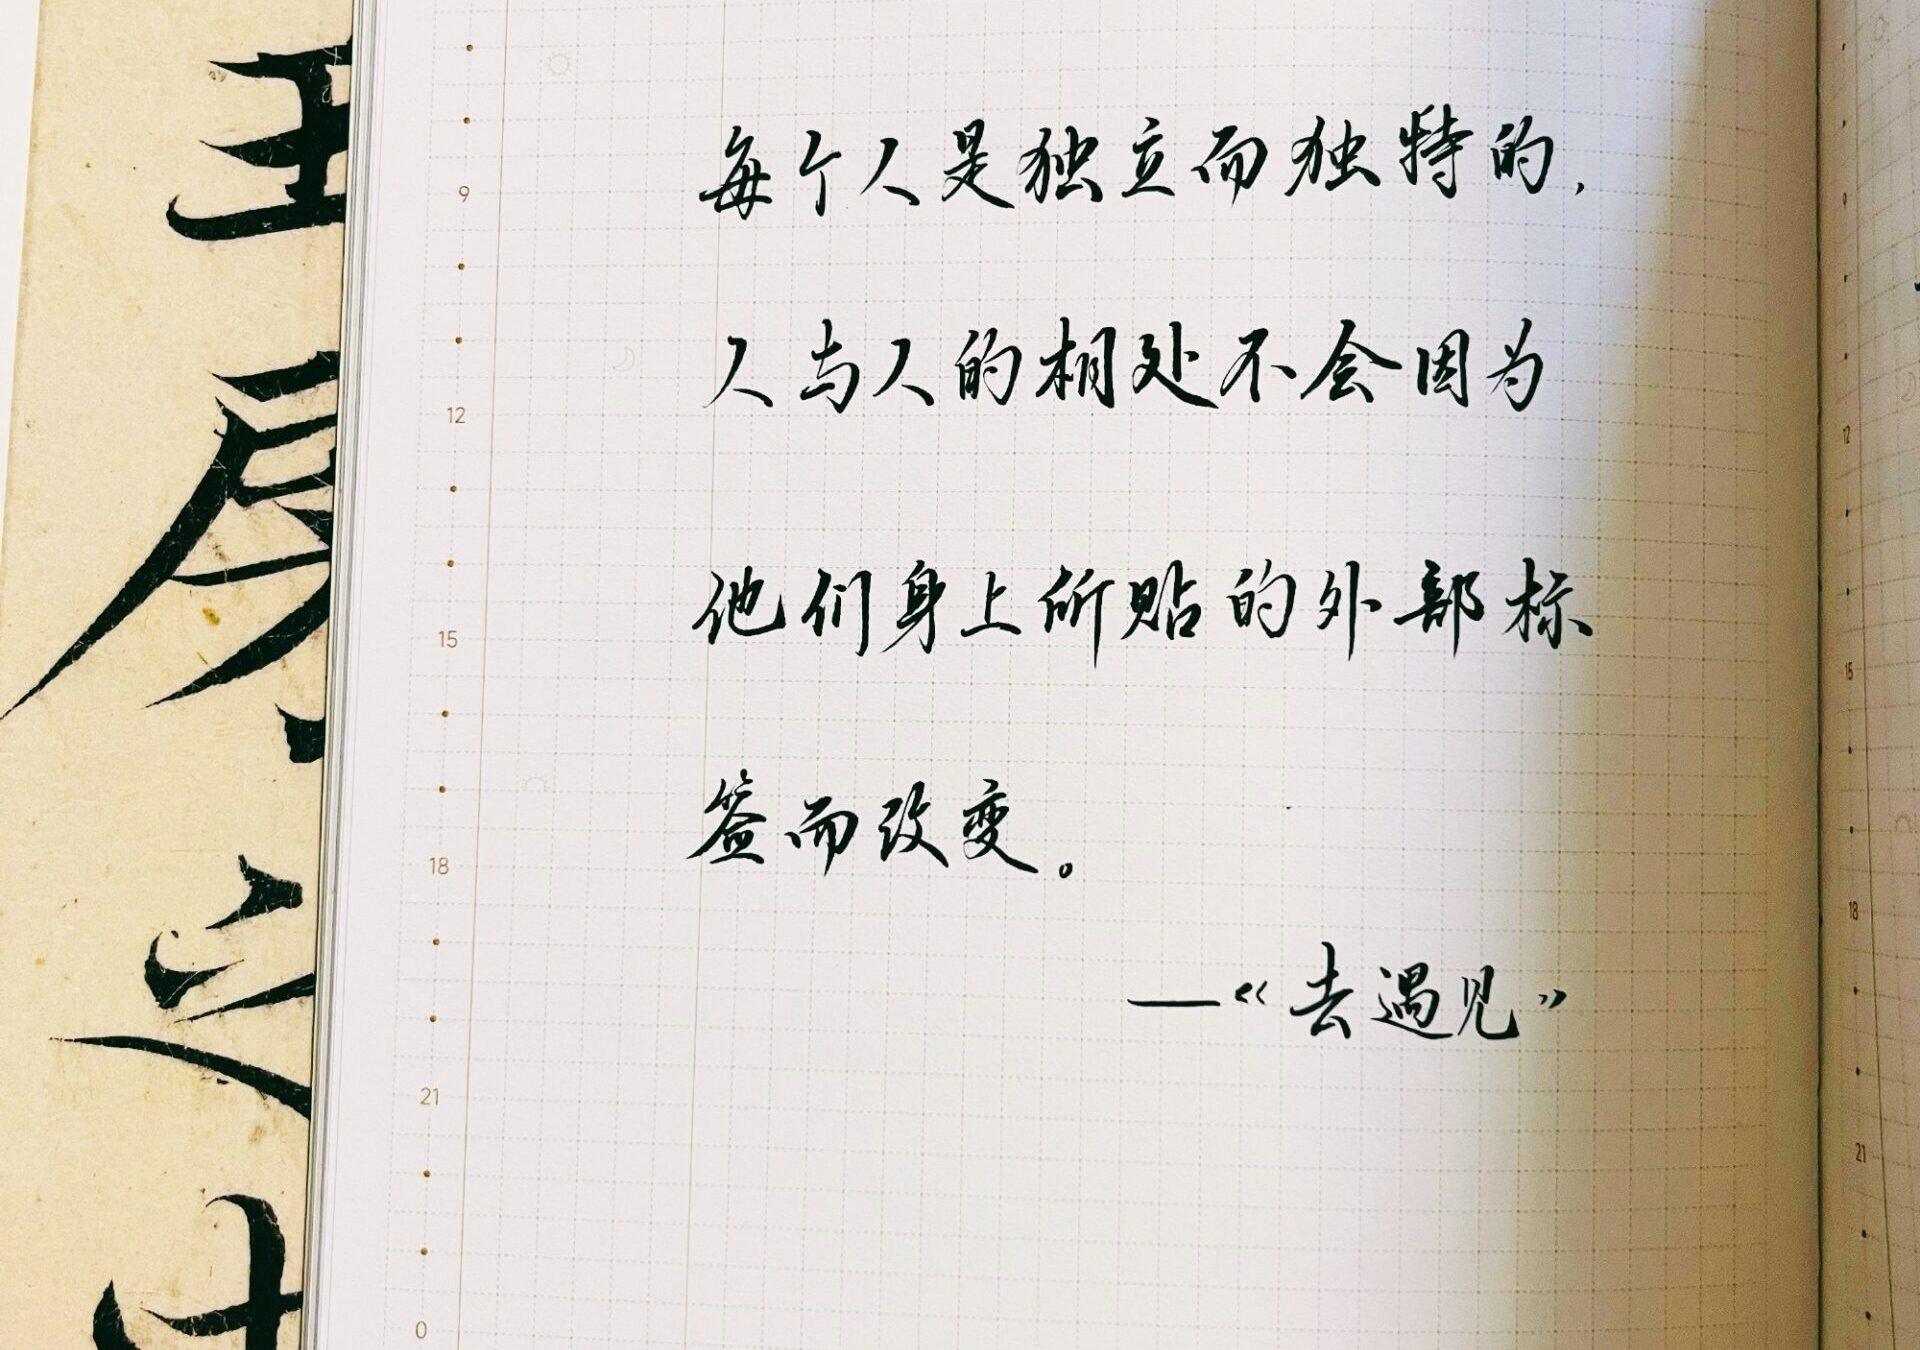 每个人是独立而独特的,
人与人的相处不会因为
他们身上所贴的外部标
签而改变。
—《去遇见》
9
12
15
18
21
0
12
15
18
21